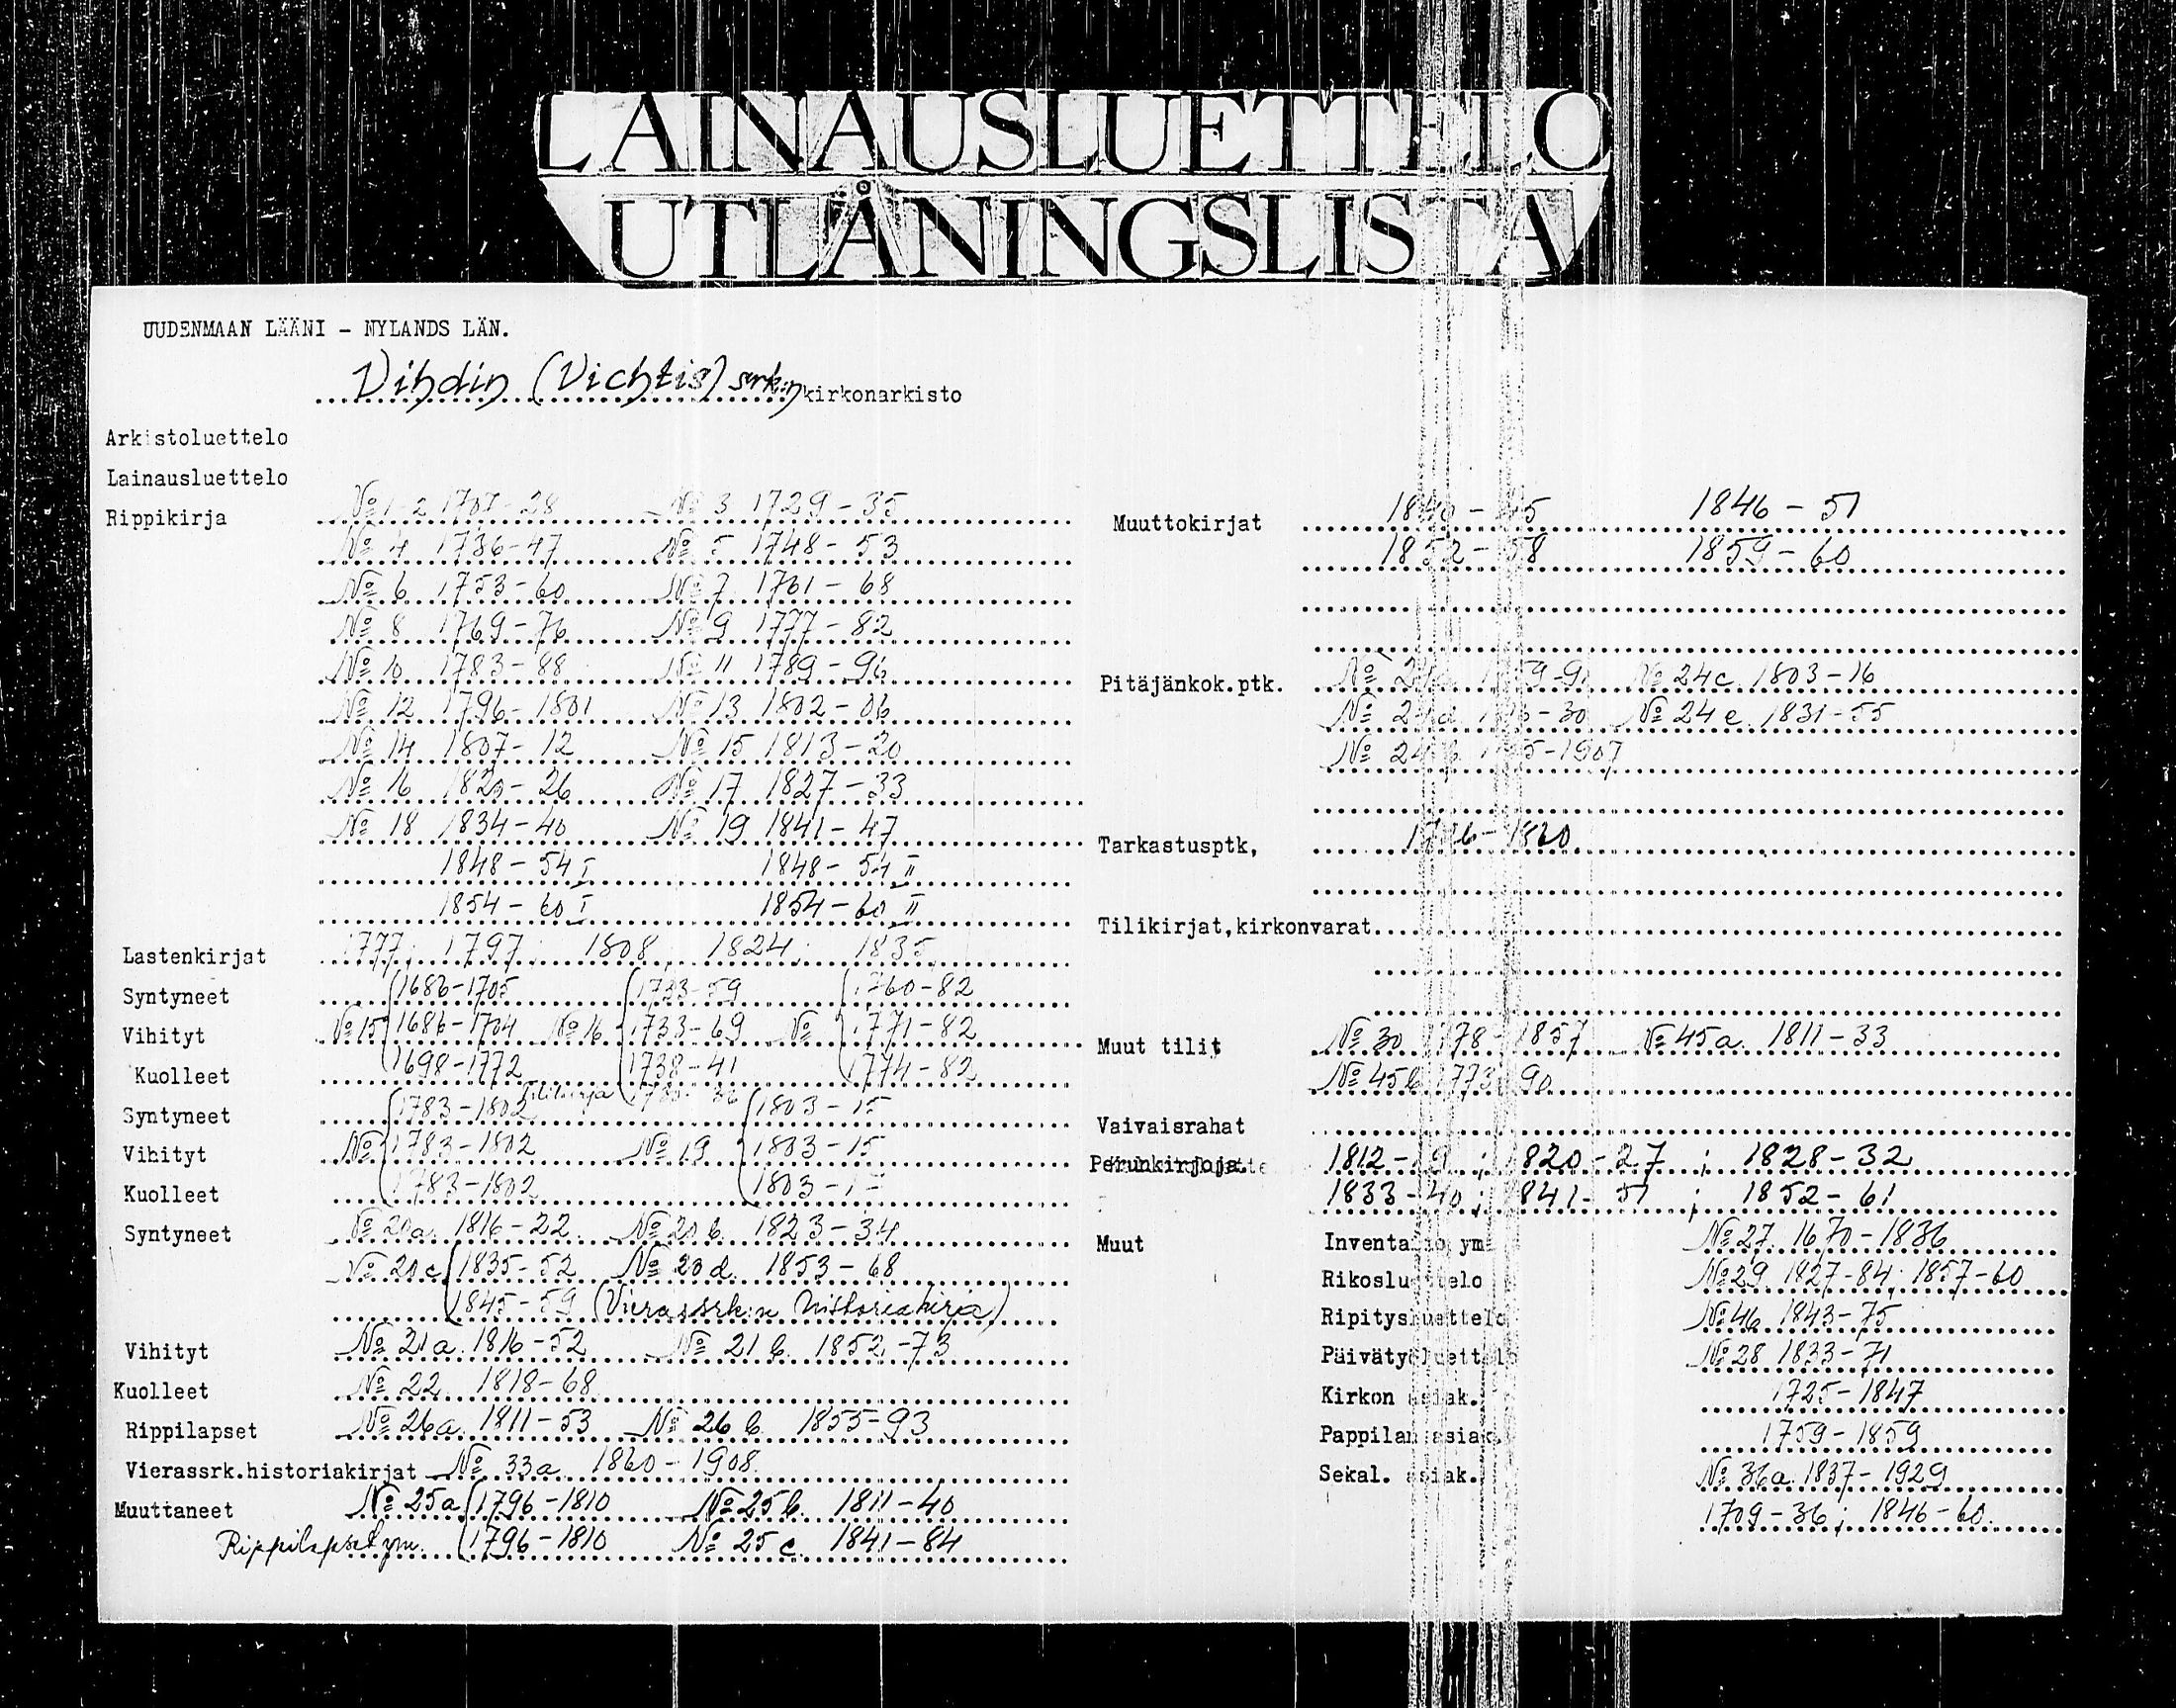 LAINAUSLUETTELO
UTLÅNINGSLISTA
UUDENMAAN LÄÄNI - NYLANDS LÄN.
Vihdin (Vichtis) srk:n kirkonarkisto
Arkistoluettelo
Lainausluettelo
Rippikirja № 1-2 1707-28 № 3 1729-35
№ 4 1736-47 № 5 1748-53
№ 6 1753-60 № 7 1761-68
№ 8 1769-76 № 9 1777-82
№ 10 1783-88 № 11 1789-96
№ 12 1796-1801 № 13 1802-06
№ 14 1807-12 № 15 1813-20
№ 16 1820-26 № 17 1827-33
№ 18 1834-40 № 19 1841-47
1848-54 I 1848-54 II
1854-60 I 1854-60 II
Lastenkirjat 1777; 1797; 1808; 1824; 1835
Syntyneet 1686-1705 1733-59 1760-82
Vihityt № 15 1686-1704 № 16 1733-69 № 1771-82
Kuolleet 1698-1772 1738-41 1774-82
Tilikirja
Syntyneet 1783-1802 1803-15
Vihityt № 1783-1802 № 19 1803-15
Kuolleet 1783-1802 1803-15
Syntyneet № 20a. 1816-22 № 20 b. 1823-34
№ 20 c 1835-52 № 20 d. 1853-68
1845-59 (Vierassrk:n historiakirja)
Vihityt № 21a. 1816-52 № 21 b. 1852-73
Kuolleet № 22 1818-68
Rippilapset № 26a. 1811-53 № 26 b. 1855-93
Vierassrk.historiakirjat № 33a. 1860-1908.
Muuttaneet № 25a 1796-1810 № 25 b. 1811-40
Rippilapset ym. 1796-1810 № 25 c. 1841-84
Muuttokirjat 1846-51
1852-58 1859-60
Pitäjänkok.ptk. № 24c. 1803-16
№ 24 e. 1831-55
-1907
Tarkastusptk,
Tilikirjat,kirkonvarat
Muut tilit № 30 1857 № 45a. 1811-33
№ 45 b 1773 90
Vaivaisrahat
Perunkirjoja 1812- ; 1820-27 ; 1828-32
1833-40; 1841-51 ; 1852-61
Muut Inventario ym. № 27. 1670-1836
Rikosluettelo № 29. 1827-84; 1857-60
Ripitysluettelo № 46. 1843-75
Päivätyöluettelo № 28 1833-71
Kirkon asiak. 1725-1847
Pappilan asiak. 1759-1859
Sekal. asiak. № 36a. 1837-1929
1709-36; 1846-60.